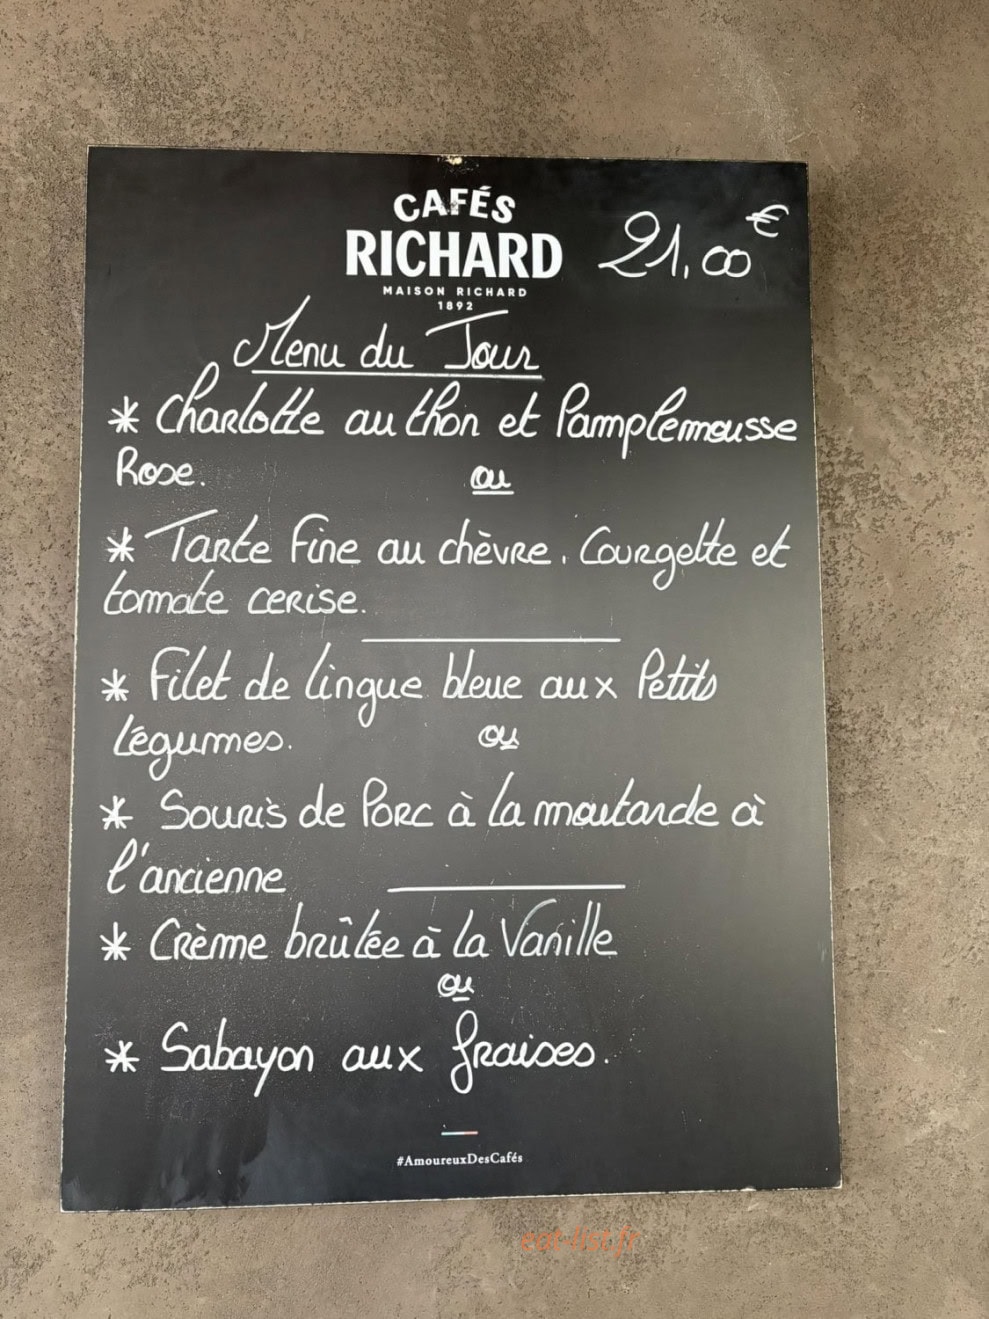 CAFÉS
RICHARD
MAISON RICHARD
1892
21,00€
Menu du Jour
* Charlotte au thon et Pamplemousse
Rose.
ou
* Tarte Fine au chèvre, Courgette et
tomate cerise.
* Filet de lingue bleue aux Petits
Légumes.
ou
* Souris de Porc à la moutarde à
l'ancienne
* Crème brûlée à la Vanille
ou
* Sabayon aux fraises.
#AmoureuxDesCafés
eat-list.fr